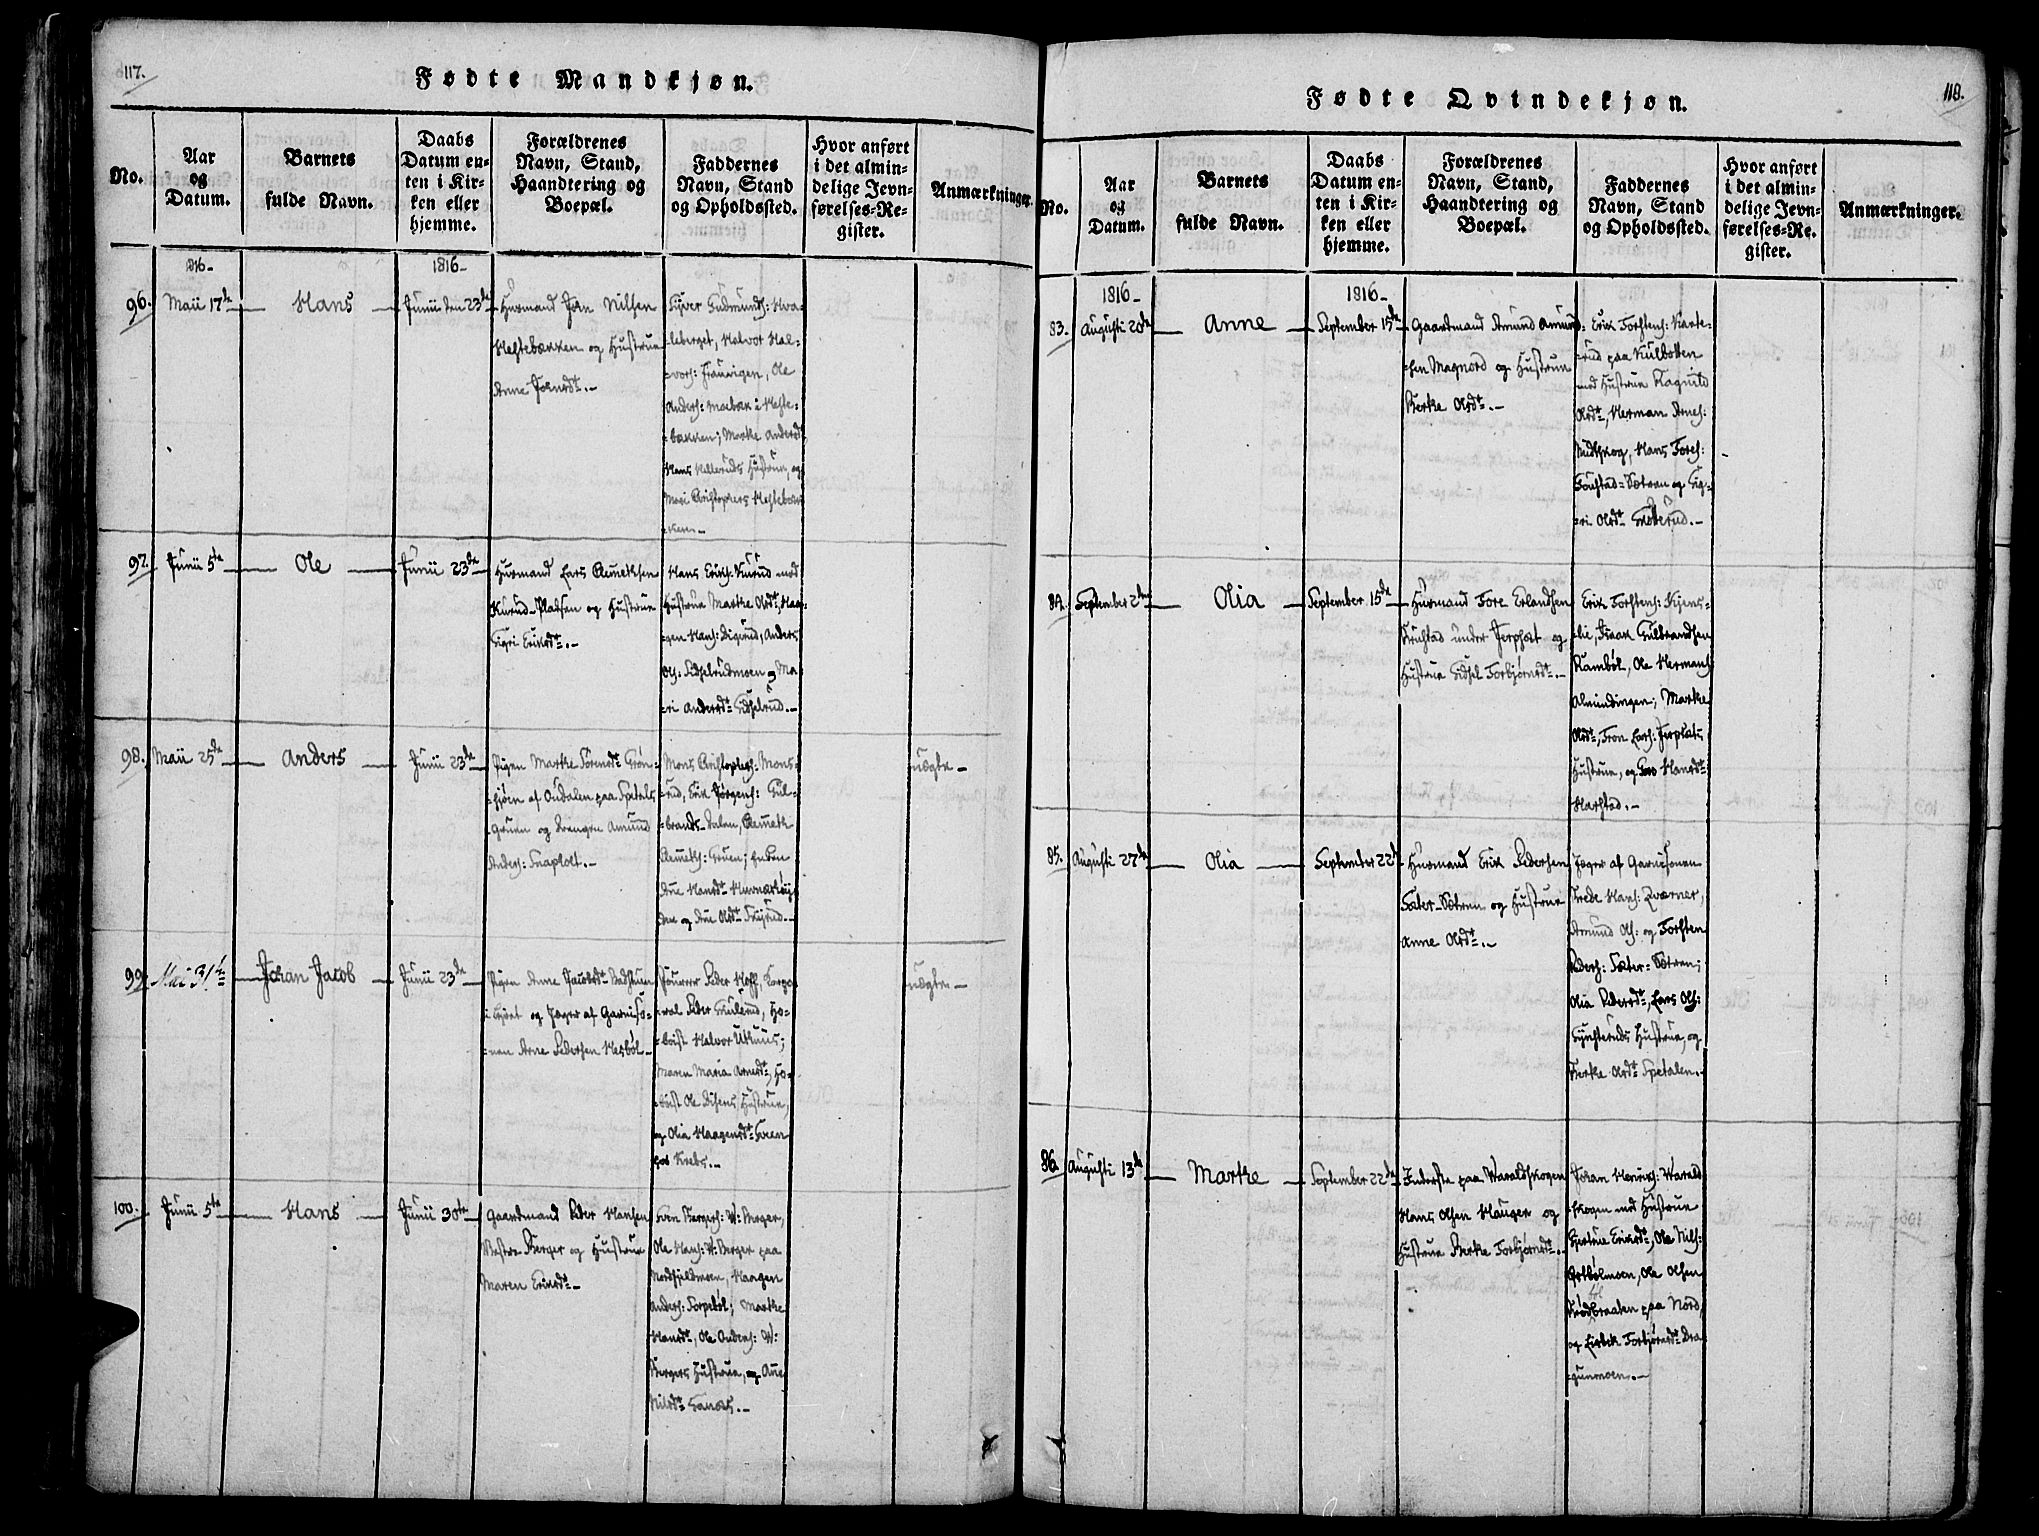 117.
Fødte Mandkjøn.
No.
Aar
og
Datum.
Barnets
fulde Navn.
Daabs
Datum en-
ten i Kir-
ken eller
hjemme.
Forældrenes
Navn, Stand,
Haandtering og
Boepæl.
Faddernes
Navn, Stand
og Opholdssted.
Hvor anført
i det almin-
delige Jevn-
førelses-Re-
gister.
Anmærkninger.
1816-
1816-
96.
Maii 17de
Hans
Junii den 23de
Huusmand John Nilsen
Hestebækken og Hustrue
Anne Johnsdt.-
Syver Gudmunds: Hva-
-leberget, Halvor Hal-
-vors: Fraurigen, Ole
Anders: Moebæk i Heste-
-bækken; Marthe Andersdt
Hans Hilleruds Hustrue, og
Mari Christophers Hestebæk-
-ken-
97.
Junii 5te
Ole
Junii 23de
Huusmand Lars Clemetsen
Kurud-Pladsen og Hustrue
Sigri Eriksdt.-
Hans Eriks: Kurud med
Hustrue Marthe Olsdt, Haa-
-gen Hans: Digerud, Anders
Ols: Sidselrudmoen og Ma-
-ri Andersdt Sidselrud.-
98.
Maii 25de
Anders
Junii 23de
Pigen Marthe Sørensdt Grøn-
af Oudalen paa Spetals
Gruen og Drengen Amund
Anders: Snapholt.-
Mons Christophers: Mons-
-rud, Erik Jørgens: Gul-
-brands-Dalen, Clemeth
Clemeths: Gruen; Enken
Ane Hansdt
og Ane Olsdt
uægte-
99.
Mai 31te
Johan Jacob
Junii 23de
Pigen Anne Jacobsdt
og Jæger af Garniso-
-nen Arne Pedersen Hesbøl-
Peder Hoff, Corpo-
-ral Peder Gulerud, Ho-
-boist Halvor Utknus;
Maren Maria Arnesdt, Ho-
-boist Ole Disens Hustrue,
og Olia Haagensdt Sveen
hos Krebs.-
uægte-
100.
Junii 5te
Hans
Junii 30te
Gaardmand Peder Hansen
Vestre Berger og Hustrue
Maren Eriksdt-
Sven Bergers: W: Berger,
Ole Hans: W: Berger paa
Nordhuldmoen, Haagen
Anders: Torpebøl; Marthe
Hansdt, Ole Anders: W:
Bergers Hustrue, og Ane
Nilsdt Sander.-
118.
Fødte Qvindekjøn.
No.
Aar
og
Datum.
Barnets
fulde Navn.
Daabs
Datum en-
ten i Kir-
ken eller
hjemme.
Forældrenes
Navn, Stand,
Haandtering og
Boepæl.
Faddernes
Navn, Stand
og Opholdssted.
Hvor anført
i det almin-
delige Jevn-
førelses-Re-
gister.
Anmærkninger.
1816-
1816-
83.
Augusti 20de
Anne
September 15de
Gaardmand Amund Amund-
-sen Magnord og Hustrue
Berthe Olsdt.-
Erik Torstens: Karte-
-rud paa Kulbotten
med Hustrue Ragnild
Olsdt, Herman Arnes:
Midtskog, Hans Tores:
Foustad-Sætren og Sig-
-ri Olsdt Skøberud.-
84.
September 2den
Olia
September 15de
Huusmand Tore Erlandsen
Kruhstad under Jerpset og
Hustrue Sidsel Torbjørnsdt.-
Erik Torstens: Kjens-
-lie, Isaak Gulbrandsen
Rambøl, Ole Hermans:
Almindingen; Marthe
Olsdt, Tron Lars: Jerpsets
Hustrue, og Hansdt
Harstad.-
85.
Augusti 27de
Olia
September 22de
Huusmand Erik Pedersen
Sæter-Sætren og Hustrue
Anne Olsdt.-
Jæger af Garnisonen
Brede Hans: Qværner,
Amund Ols: og Torsten
Peders: Sæter-Sætren;
Olia Pedersdt, Lars Ols:
Hustrue, og
Berthe Olsdt Spetalen.-
86.
Augusti 13de
Marthe
September 22de
Inderste paa Waraldskogen
Hans Olsen Hauger og
Hustrue Berthe Torbjørnsdt.-
Johan Henriks: Warald-
-skogen med Hustrue
Eriksdt, Ole Nils:
Ole Olsen
paa Nord,
og Lisbek Torbjørnsdt Dra-
-gunmoen.-